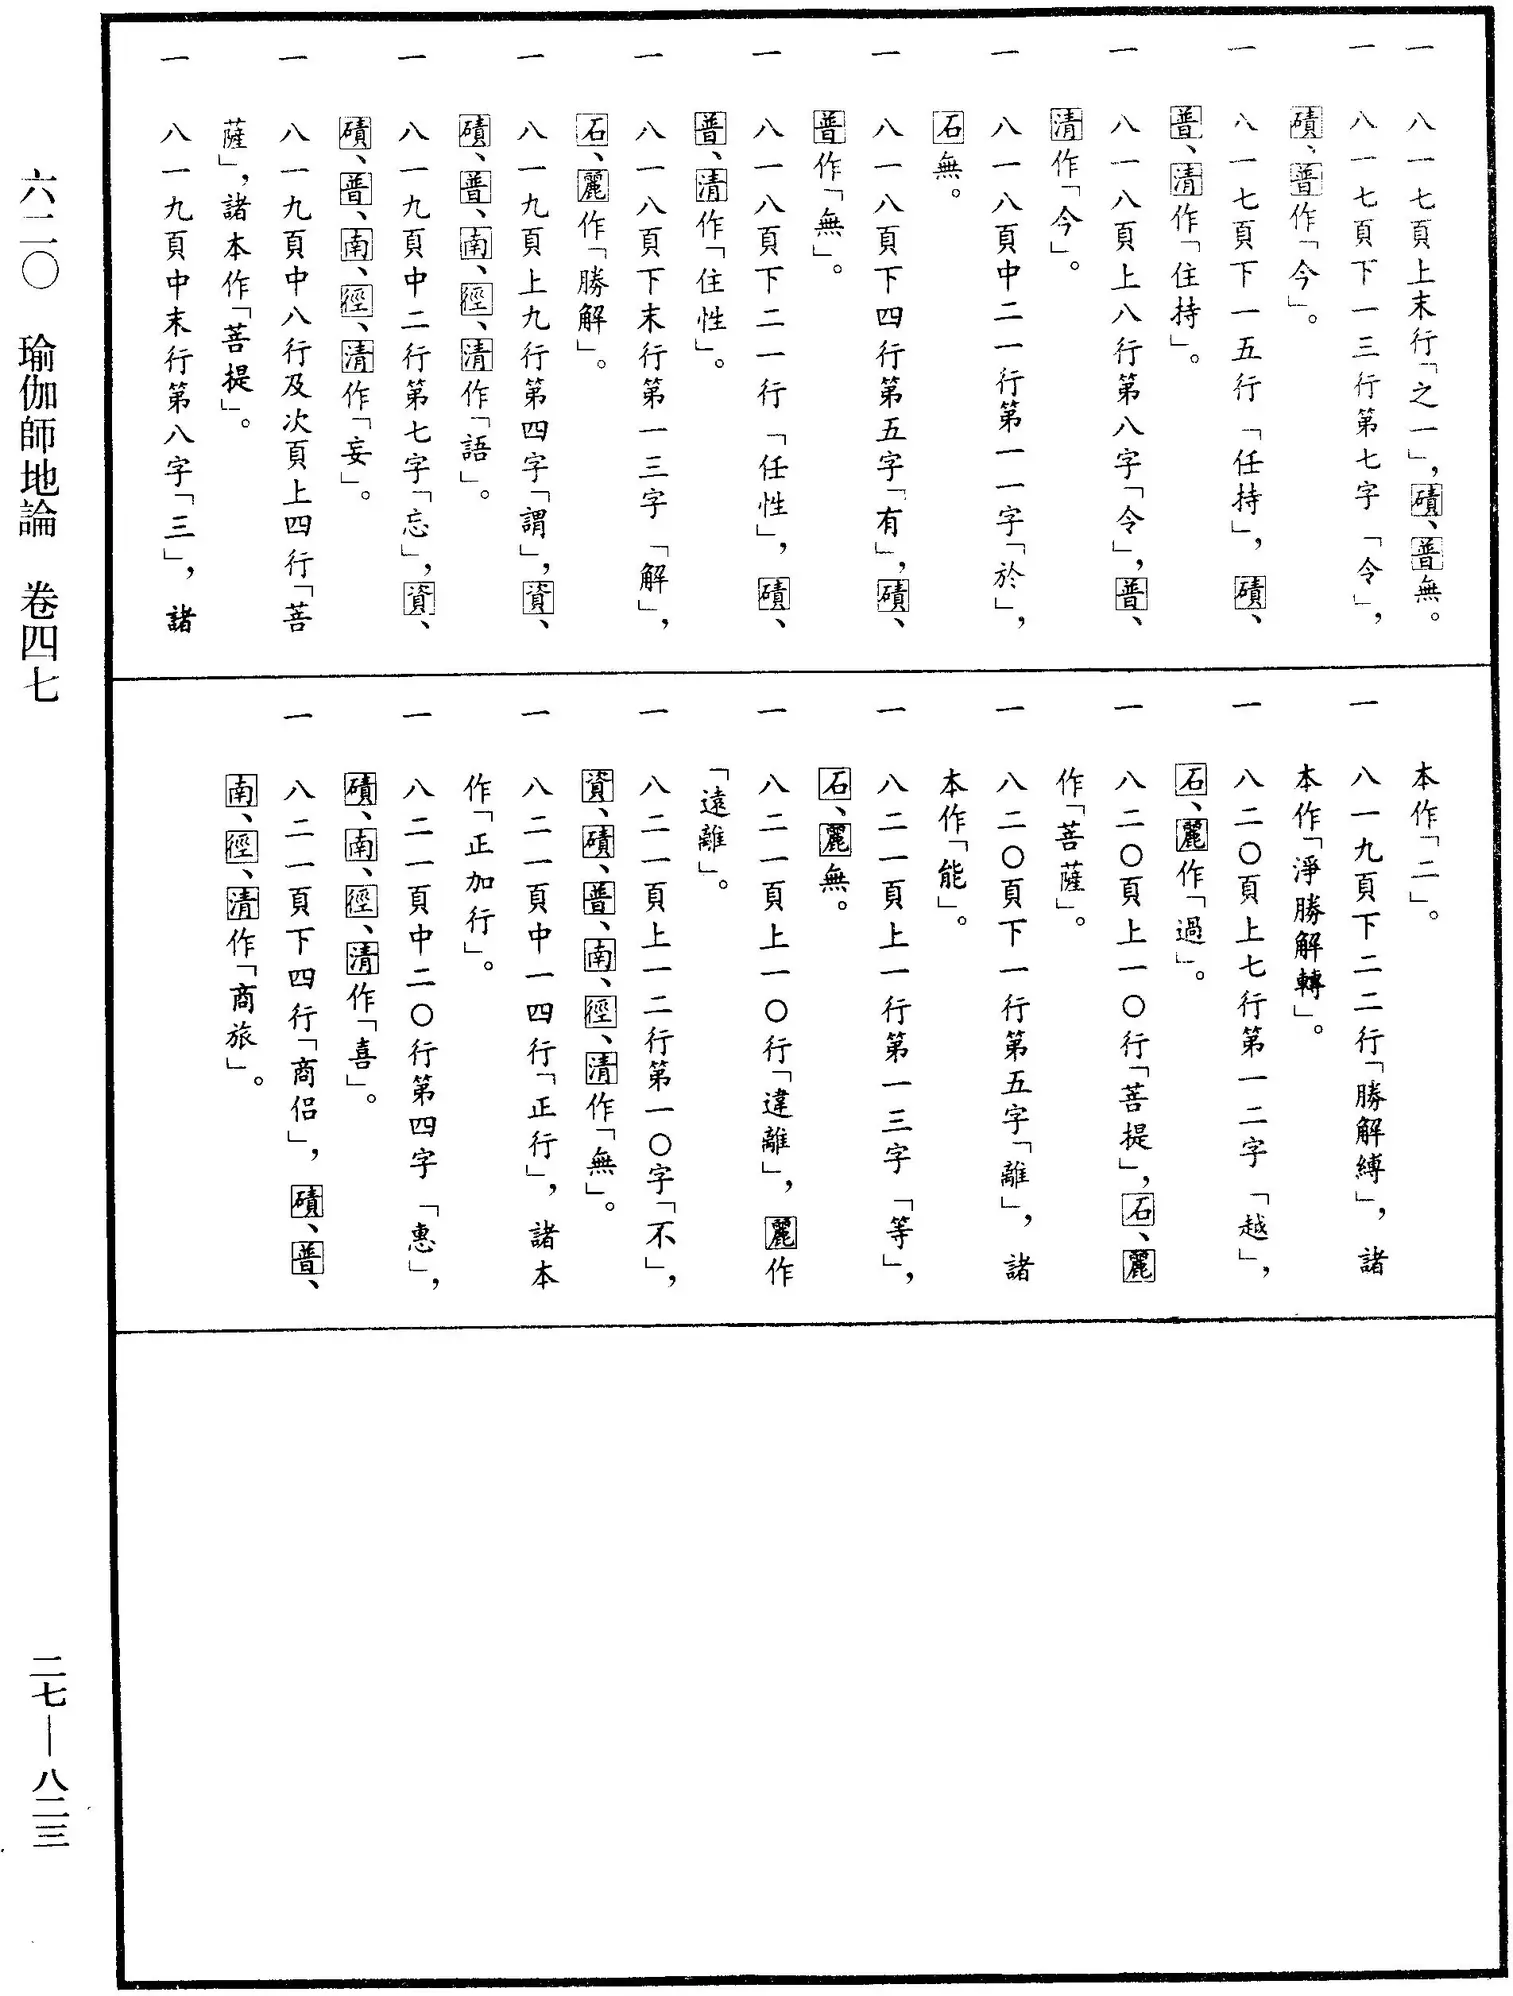 一　八一七頁上末行「之一」，磧、普無。
一　八一七頁下一三行第七字「令」，
磧、普作「今」。
一　八一七頁下一五行「任持」，磧、
普、清作「住持」。
一　八一八頁上八行第八字「令」，普、
清作「今」。
一　八一八頁中二一行第一一字「於」，
石無。
一　八一八頁下四行第五字「有」，磧、
普作「無」。
一　八一八頁下二一行「任性」，磧、
普、清作「住性」。
一　八一八頁下末行第一三字「解」，
石、麗作「勝解」。
一　八一九頁上九行第四字「謂」，資、
磧、普、南、徑、清作「語」。
一　八一九頁中二行第七字「忘」，資、
磧、普、南、徑、清作「妄」。
一　八一九頁中八行及次頁上四行「菩
薩」，諸本作「菩提」。
一　八一九頁中末行第八字「三」，諸
本作「二」。
一　八一九頁下二二行「勝解縛」，諸
本作「淨勝解轉」。
一　八二〇頁上七行第一二字「越」，
石、麗作「過」。
一　八二〇頁上一〇行「菩提」，石、麗
作「菩薩」。
一　八二〇頁下一行第五字「離」，諸
本作「能」。
一　八二一頁上一行第一三字「等」，
石、麗無。
一　八二一頁上一〇行「違離」，麗作
「遠離」。
一　八二一頁上一二行第一〇字「不」，
資、磧、普、南、徑、清作「無」。
一　八二一頁中一四行「正行」，諸本
作「正加行」。
一　八二一頁中二〇行第四字「惠」，
磧、南、徑、清作「喜」。
一　八二一頁下四行「商侶」，磧、普、
南、徑、清作「商旅」。
六二〇　瑜伽師地論　卷四七
二七—八二三